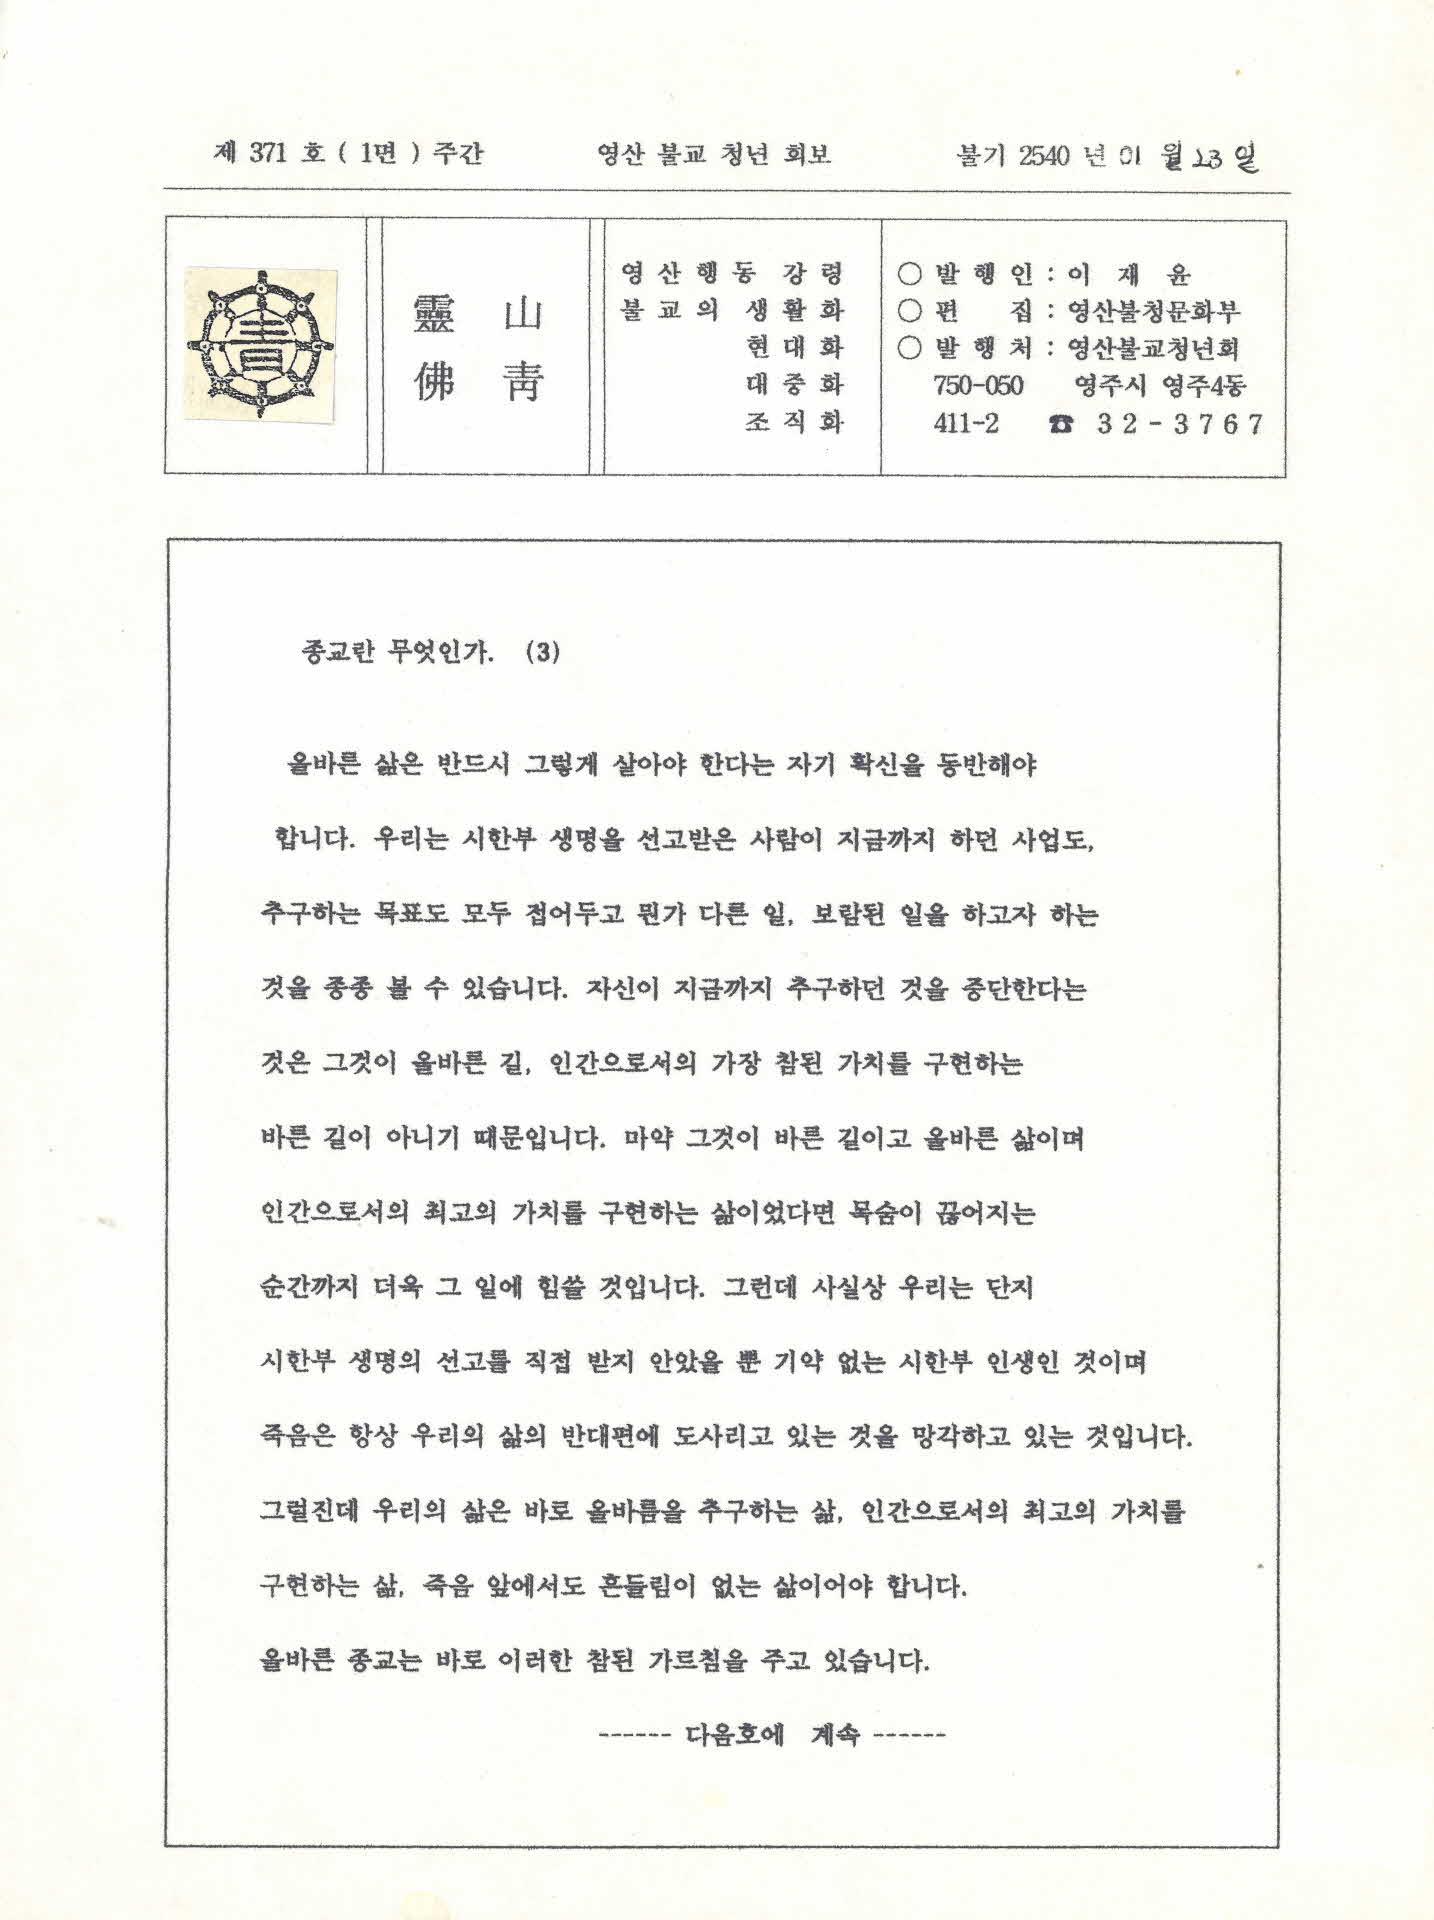 제 371 호 ( 1면 ) 주간 영산 불교 청년 회보 불기 2540 년 01 월 23 일
靑
靈 山
佛 靑
영 산 행 동 강 령
불 교 의 생 활 화
현 대 화
대 중 화
조 직 화
○ 발 행 인 : 이 재 윤
○ 편 집 : 영산불청문화부
○ 발 행 처 : 영산불교청년회
750-050 영주시 영주4동
411-2 ☎ 32-3767
종교란 무엇인가. (3)
올바른 삶은 반드시 그렇게 살아야 한다는 자기 확신을 동반해야
합니다. 우리는 시한부 생명을 선고받은 사람이 지금까지 하던 사업도,
추구하는 목표도 모두 접어두고 뭔가 다른 일, 보람된 일을 하고자 하는
것을 종종 볼 수 있습니다. 자신이 지금까지 추구하던 것을 중단한다는
것은 그것이 올바른 길, 인간으로서의 가장 참된 가치를 구현하는
바른 길이 아니기 때문입니다. 마약 그것이 바른 길이고 올바른 삶이며
인간으로서의 최고의 가치를 구현하는 삶이었다면 목숨이 끊어지는
순간까지 더욱 그 일에 힘쓸 것입니다. 그런데 사실상 우리는 단지
시한부 생명의 선고를 직접 받지 안았을 뿐 기약 없는 시한부 인생인 것이며
죽음은 항상 우리의 삶의 반대편에 도사리고 있는 것을 망각하고 있는 것입니다.
그럴진데 우리의 삶은 바로 올바름을 추구하는 삶, 인간으로서의 최고의 가치를
구현하는 삶, 죽음 앞에서도 흔들림이 없는 삶이어야 합니다.
올바른 종교는 바로 이러한 참된 가르침을 주고 있습니다.
------ 다음호에 계속 ------